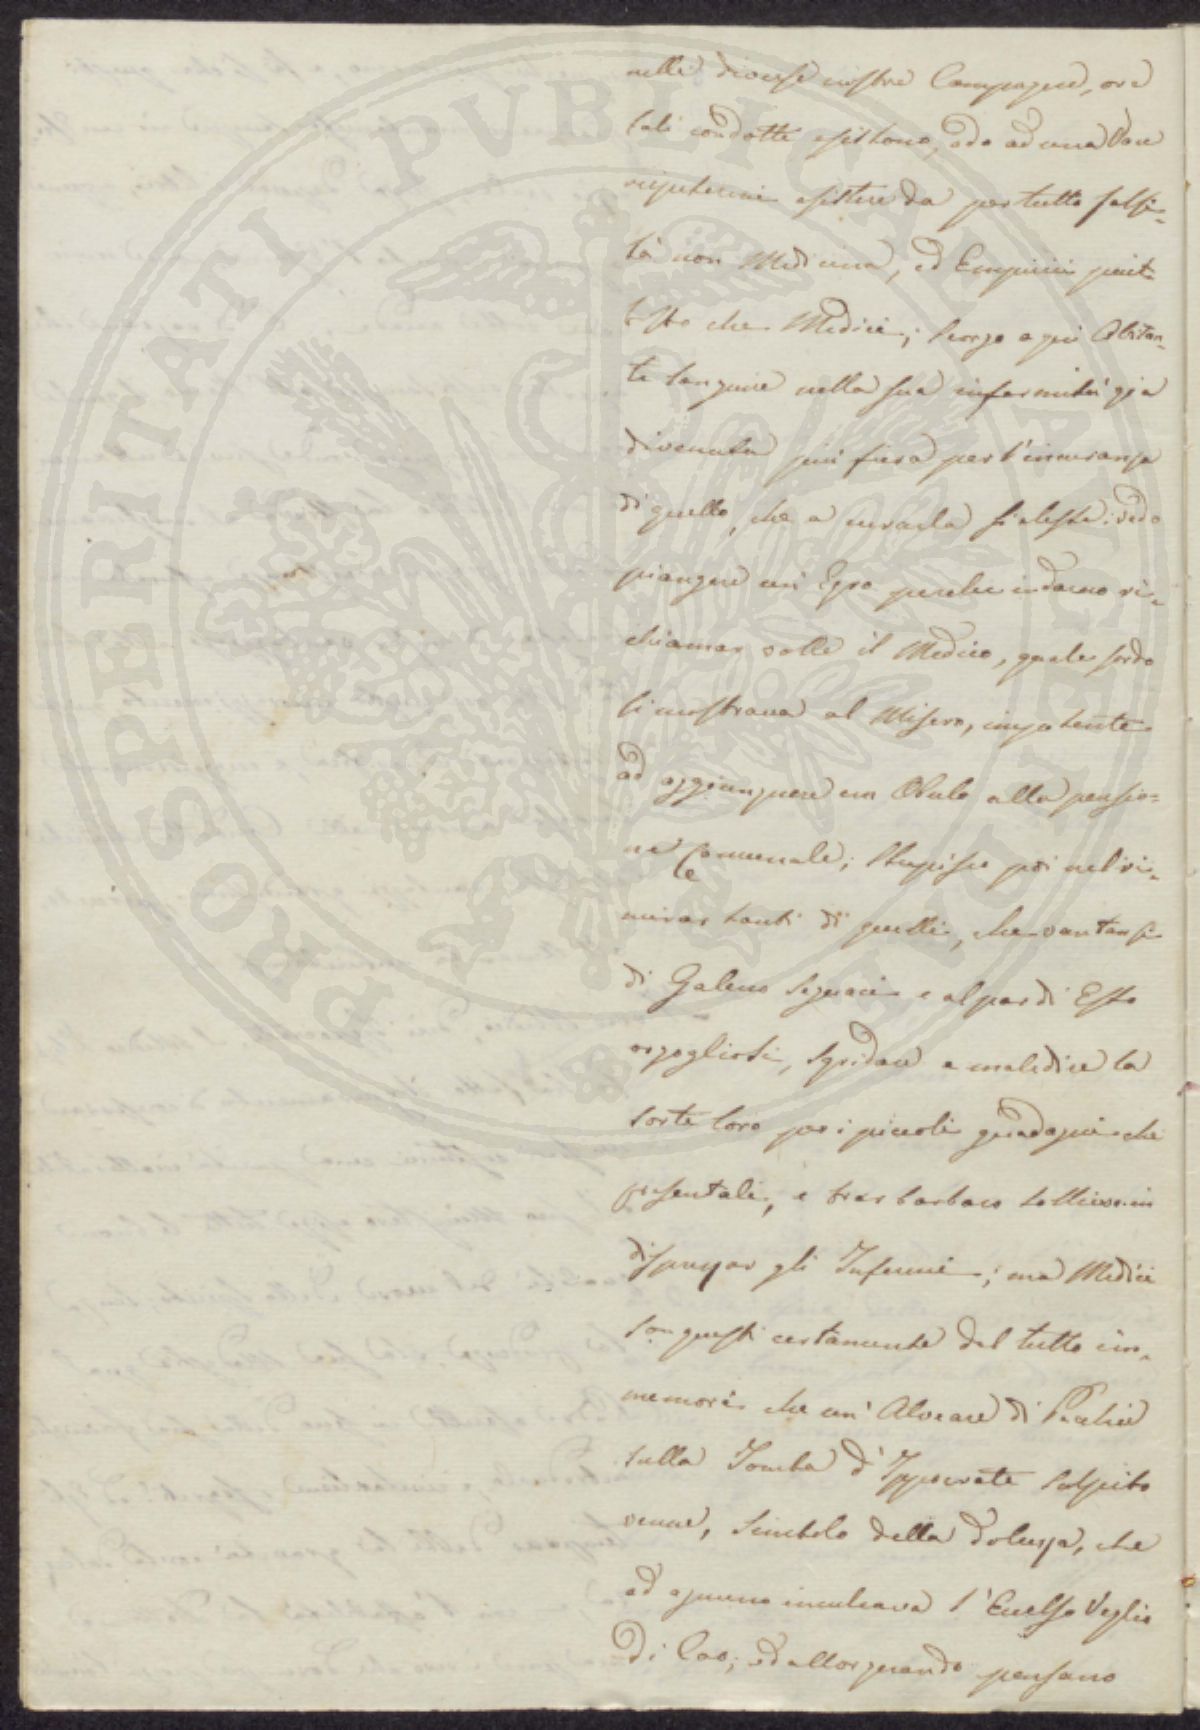 nelle diverse nostre Campagne, ove
tali condotte esistono, odo ad una voce
ripetermi esistere da per tutto falsi-
tà non Medicina, ed Empirici piut
tosto che Medici; scorgo a qui Abitan-
te languire nella sua infermità già
divenuta più fiera per l'incuranza
di quello, che a curarla si elesse; vedo
piangere un' Egro perche indarno ri-
chiamar volle il Medico, quale sordo
si mostrava al Misero, impotente
ad aggiungere un Obulo alla pensio=
ne Comunale; stupisco poi nel ri-
mirar tanti di quelli, che vantansi
di Galeno seguaci e al par di Esso
orgogliosi, sgridare e maledire la
sorte loro per i piccoli guadagni che
presentali, e trar barbaro sollievo in
disprezzar gli Infermi; ma Medici
son questi certamente del tutto im-
memori che un' Alveare di Pecchie
sulla Tomba d'Ippocrate scolpito
venne, simbolo della dolcezza, che
ad ognuno inculcava l'Eccelso Veglio
di Coo; ed allorquando pensano
PROSPERITATI PUBLICAE AUGENDAE